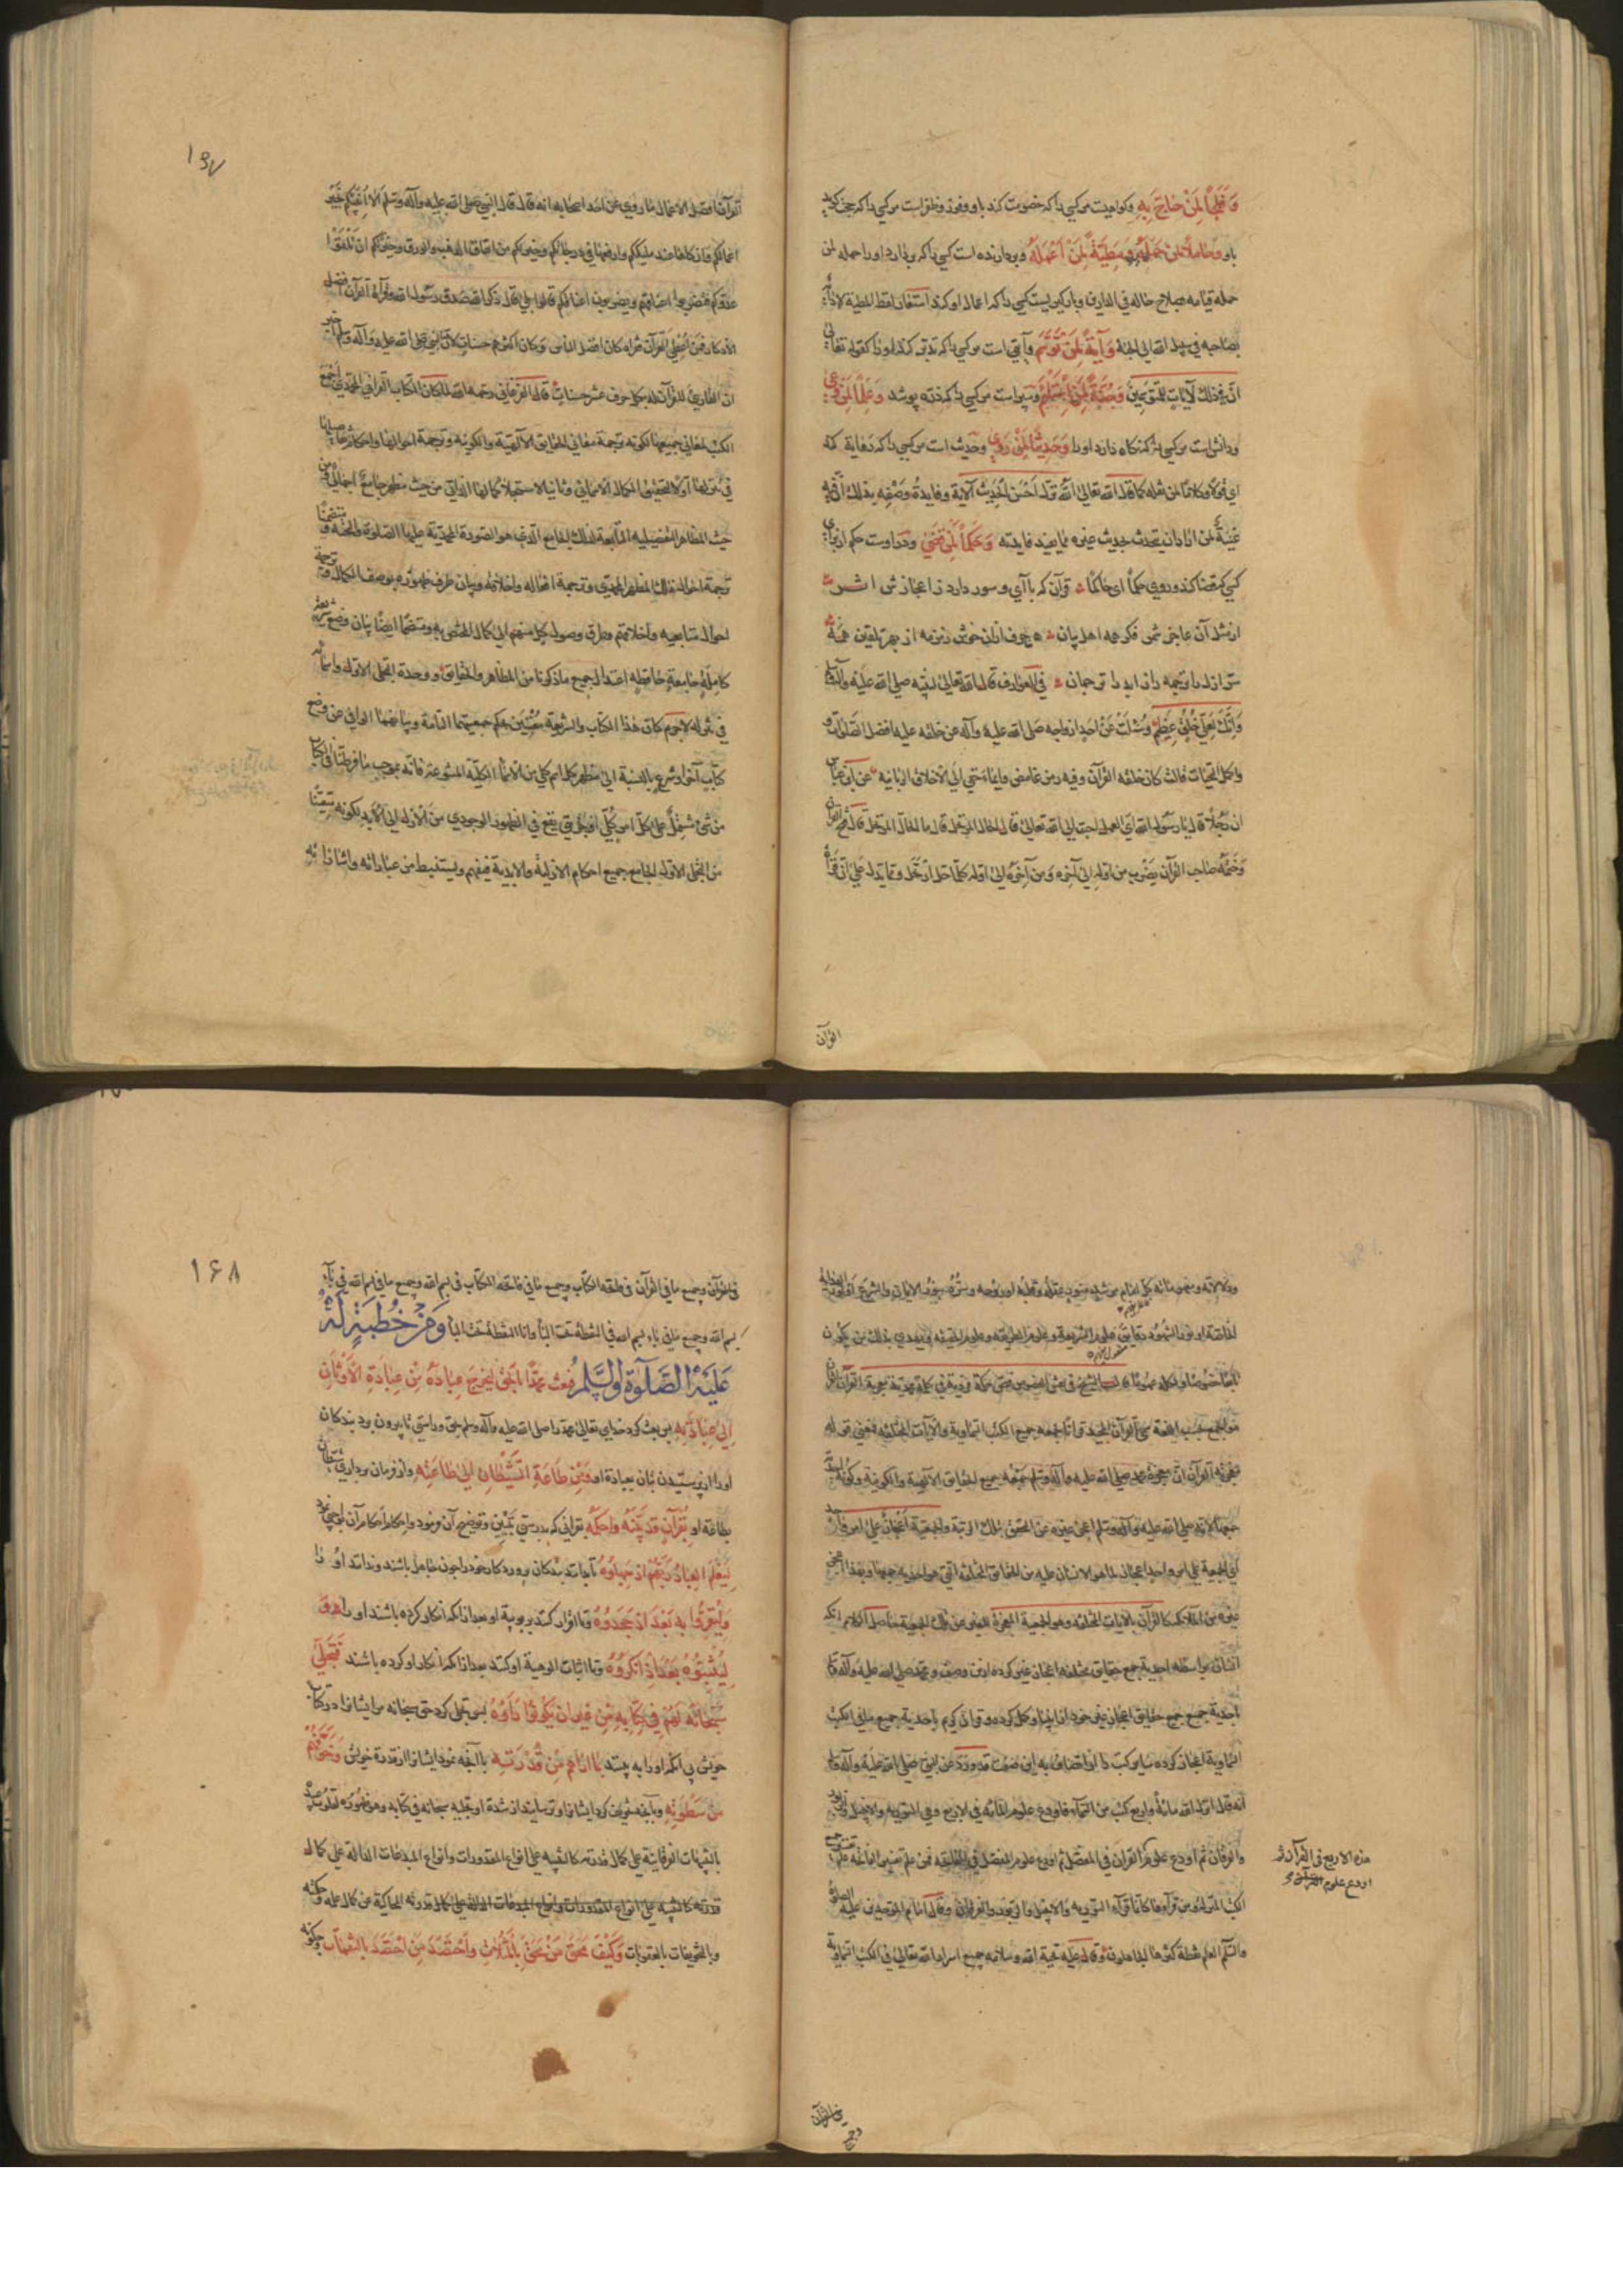 وَفَلْجاً لِمَنْ حَاجَّ بِهِ وكواهيست مركسي را كه خصومت كند باو وفوز وظفر است مركسي را كه حجت كويد
باو وَحَامِلاً لِمَنْ حَمَلَهُ وَمَطِيَّةً لِمَنْ أَعْمَلَهُ وبردارنده است كسي را كه بردارد او را حمله لمن
حمله قيامه بصلاح حاله في الدارين وباركيريست كسي را كه اعمال او كند استعار لفظ المطية لانه
بصاحبه في سبيل الله الى الجنة وَآيَةً لِمَنْ تَوَسَّمَ وآيتي است مركسي را كه تدبر كند او را كقوله تعالى
انّ في ذلك لآيات للمتوسمين وَجُنَّةً لِمَنِ اسْتَلْأَمَ وسپر است مركسي را كه زره پوشد وَعِلْماً لِمَنْ وَعَى
ودانش است مركسي را كه نكاه دارد او را وَحَدِيثاً لِمَنْ رَوَى وحديث است مركسي را كه رواية كند
اي قولا وكلاما لمن نقله كما قال الله تعالى اللّه نزّل احسن الحديث الآية وفايدة وصفه بذلك انّ فيه
غنية لمن اراد ان يتحدث بحديث غيره مما يفيد فايدته وَحُكْماً لِمَنْ قَضَى ودر اوست حكم از براى
كسي كه قضا كند وروي حكماً اى حاكماً قرآن كه با آي وسور دارد ز اعجازش اثر
از مثل آن عاجز شمر فكر همه اهل بيان هر حرف ازان خوش زمزمه از بهر تلقين همه
سرّ ازل را ترجمه راز ابد را ترجمان في العوارف قال الله تعالى لنبيه صلى الله عليه وآله
وَإِنَّكَ لَعَلى خُلُقٍ عَظِيمٍ وسُئلت عن احد ازواجه صلى الله عليه وآله عن خلقه عليه افضل الصلوات و
واكمل التحيات قالت كان خلقه القرآن وفيه رمز غامض وايماء خفي الى الاخلاق الربانيه عن ابن عباس
ان رجلاً قال يا رسول الله اي العمل احب الى الله تعالى قال الحال المرتحل قال ما الحال المرتحل قال فتح القرآن
وختمه صاحب القرآن يضرب من اوله الى آخره ومن آخره الى اوله كلما حل ارتحل ومما يدل على ان قرأة
القرآن
١٦٧
القرآن افضل الاعمال ما روي عن احد اصحابه انه قال قال النبي صلى الله عليه وآله وسلم الا اُنبئكم بخير
اعمالكم وازكاها عند مليككم وارفعها في درجاتكم وخير لكم من انفاق الذهب والورق وخير لكم ان تلقوا
عدوكم فتضربوا اعناقهم ويضربون اعناقكم قالوا بلى قال ذكر الله صدق رسول الله وقرآة القرآن افضل
الاذكار فمن اعطي القرآن فقرأه كان افضل الناس وكان اكثرهم حسنات لان النبي صلى الله عليه وآله وسلم اخبر
ان القارئ للقرآن له بكل حرف عشر حسنات قال الفرغاني رحمه الله لما كان الكتاب القرآني المحمدي اجمع
الكتب لمعاني جميعها لكونه ترجمة معاني الحقايق الآلهية والكونيه وترجمة احوالها واحكامها
في تنزلها اولا لتحقيق الكمال الاسمائي وثانيا لاستقبال كمالها الذاتي من حيث مظهر جامع اجمالي ومن
حيث المظاهر التفصيليه التابعة لذلك الجامع الذي هو الصورة المحمدية عليها الصلوة والتحية ومتضمنا
ترجمة احوال ذلك المظهر المحمدي وترجمة افعاله واخلاقه وبيان طرف ظهوره بوصف الكمال وترجمة
احوال متابعيه واخلاقهم وطرق وصول كل منهم الى كمال المختص به ومتضمنا ايضا بيان وضع شريعة
كاملة جامعة حافظه اعتدال جميع ما ذكرنا من المظاهر والحقايق ووحدة التجلي الاول واسمائه
في تنزله لاجرم كان هذا الكتاب والشريعة مغنيين بحكم جمعيتهما التامة وبيانهما الوافي عن وضع
كتاب آخر او شرع بالنسبة الى مظهر كل اسم كلي من الاسماء الكلية المتنوعه فانه بموجب ما فرطنا في الكتاب
من شيء مشتمل على كل امر كلي او جزئي يقع في الظهور الوجودي من الازل الى الابد لكونه متعينا
من التجلي الاول الجامع جميع احكام الازلية والابدية فيفهم ويستنبط من عباراته واشاراته
ودلالاته ومفهوماته كل امام مرشد منور بعقله وقلبه او بروحه وسره بنور الايمان والشرع او نور الهداية
الخاصة او نور الشهود دقايق علوم الشريعة وعلوم الطريقه وعلوم الحقيقه فيهدي بذلك من يكون
تابعا خصوصا ولكل عموما قال الشيخ في نقش الفصوص فص حكمة فردية في كلمة محمدية معجزته القرآن
هو الجمع بحسب اللغة سمي القرآن المجيد قرآنا لجمعه جميع الكتب السماوية والآيات المختلفه فمعنى قوله
معجزته القرآن ان معجزة محمد صلى الله عليه وآله وسلم جمعه بجميع الحقايق الآلهية والكونية وكونه
جمعها لانه صلى الله عليه وآله وسلم اعجز غيره عن التحقق بتلك الرتبة والجمعية اعجاز على امر واحد
اي الجمعية على امر واحد اعجاز لما هو الانسان عليه من الحقايق المختلفة التي هو احدية جمعها وبهذا اعجز
غيره من الملائكه كالقرآن بالآيات المختلفه وهو الجمعية المعجزة الغير عن تلك الجمعية حاصل كلام انكه
انسان بواسطه احدية جمع حقايق مختلفه اعجاز غير كرده ازين وصف ومحمد صلى الله عليه وآله
باحدية جمع جميع حقايق اعجاز غير خود از انبيا وكمل كرده وقرآن كريم باحدية جميع ما في الكتب
السماوية اعجاز كرده ساير كتب را از اتصاف به اين صفت قد ورد عن النبي صلى الله عليه وآله
انه قال انزل الله مائة واربع كتب من السماء فاودع علوم المائه في الاربع وهي التوريه والانجيل والزبور
والفرقان ثم اودع علوم القرآن في المفصل ثم اودع علوم المفصل في الفاتحه فمن علم تفسير الفاتحه علم تفسير جميع
الكتب المنزله ومن قرأها فكانما قرأ التوريه والانجيل والزبور والفرقان وقال امام الموحدين عليه الصلوة
والسلم العلم نقطة كثرها الجاهلون وقال عليه تحية الله وسلامه جميع اسرار الله تعالى في الكتب السماوية
هذه الاربع في القرآن ثم
اودع علوم القرآن
في القرآن
وجميع
١٦٨
في القرآن وجميع ما في القرآن في فاتحه الكتاب وجميع ما في فاتحه الكتاب في بسم الله وجميع ما في بسم الله في باء
بسم الله وجميع ما في باء بسم الله في النقطة تحت الباء وانا النقطة تحت الباء وَمِنْ خُطْبَةٍ لَهُ
عَلَيْهِ الصَّلوٰةُ وَالسَّلَم فبعث محمدًا بالحق ليخرج عباده من عبادة الأوثان
إلى عبادته پس بعث كرد خداي تعالى محمد را صلى الله عليه وآله وسلم بحق وراستي تا بيرون برد بندكان
او را از پرستيدن بتان بعبادة او ومن طاعة الشيطان إلى طاعته واز فرمان برداري شيطان
بطاعة او بقرآن قد بيّنه وأحكمه بقرآني كه بدرستي تبيين وتوضيح آن فرمود واحكام احكام آن بوحي نمود
ليعلم العباد ربّهم إذ جهلوه تا بدانند بندكان پروردكار خود را چون جاهل باشند وندانند او را
وليقرّوا به بعد إذ جحدوه وتا اقرار كنند بربوبية او بعد ازانكه انكار كرده باشند او را
ليثبتوه بعد إذ أنكروه وتا اثبات الوهية او كنند بعد ازانكه انكار او كرده باشند فتجلّى
سبحانه لهم في كتابه من غير أن يكونوا رأوه پس تجلي كرد حق سبحانه مر ايشانرا در كتاب
خويش بي انكه او را به بينند بما أراهم من قدرته باآنچه نمود ايشانرا از قدرة خويش وخوّفهم
من سطوته وبآنچه تخويف كرد ايشانرا وترسانيد از شدة او تجليه سبحانه في كتابه وهو ظهوره لعباده
بالتنبيهات الفرقانية على كمال قدرته كالتنبيه على انواع المقدورات وانواع المبدعات الدالة على كمال
قدرته كالتنبيه على انواع المقدورات وانواع المبدعات الدالة على كمال قدرته الحاكية عن كمال علمه وحكمته
وبالتخويفات بالعقوبات وكيف محق من محق بالمثلات واحتصد من احتصد بالنقمات وچكونه